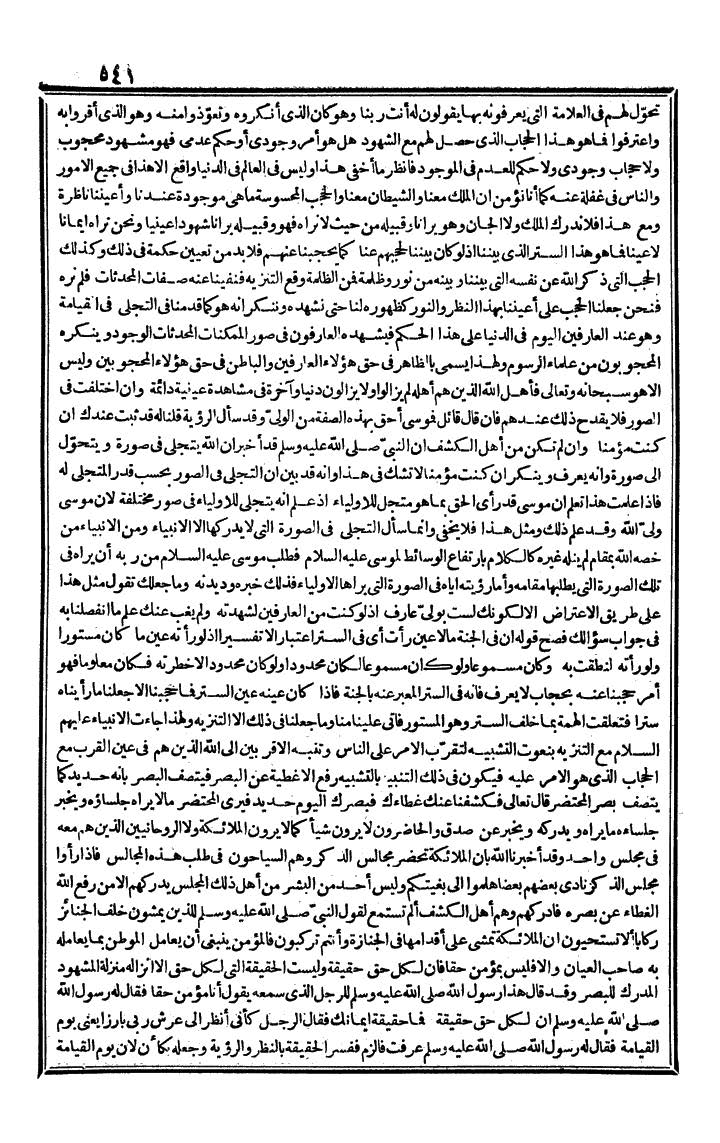 ٥٤١
تحوّل لهم فى العلامة التى يعرفونه بها يقولون له أنت ربنا وهو كان الذى أنكروه وتعوّذوا منه وهو الذى أقروا به
واعترفوا فما هو هذا الحجاب الذى حصل لهم مع الشهود هل هو أمر وجودى أو حكم عدمى فهو مشهود محجوب
ولا حجاب وجودى ولا حكم للعدم فى الموجود فانظر ما أخفى هذا وليس فى العالم فى الدنيا واقع الا هذا فى جميع الامور
والناس فى غفلة عنه كما أنا نؤمن ان الملك معنا والشيطان معنا والحجب المحسوسة ما هى موجودة عندنا وأعيننا ناظرة
ومع هذا فلا ندرك الملك ولا الجان وهو يرانا وقبيله من حيث لا نراه فهو وقبيله يرانا شهودا عينيا ونحن نراه ايمانا
لا عينا فما هو هذا الستر الذى بيننا اذ لو كان بيننا لحجبهم عنا كما يحجبنا عنهم فلا بد من تعيين حكمة فى ذلك وكذلك
الحجب التى ذكر الله عن نفسه التى بيننا وبينه من نور وظلمة فمن الظلمة وقع التنزيه فنفينا عنه صفات المحدثات فلم نره
فنحن جعلنا الحجب على أعيننا بهذا النظر والنور كظهوره لنا حتى نشهده وننكر انه هو كما قدمنا فى التجلى فى القيامة
وهو عند العارفين اليوم فى الدنيا على هذا الحكم فيشهده العارفون فى صور الممكنات المحدثات الوجود وينكره
المحجوبون من علماء الرسوم ولهذا يسمى بالظاهر فى حق هؤلاء العارفين والباطن فى حق هؤلاء المحجوبين وليس
الا هو سبحانه وتعالى فأهل الله الذين هم أهله لم يزالوا ولا يزالون دنيا وآخرة فى مشاهدة عينية دائمة وان اختلفت فى
الصور فلا يقدح ذلك عندهم فان قال قائل فموسى أحق بهذه الصفة من الولىّ وقد سأل الرؤية قلنا له قد ثبت عندك ان
كنت مؤمنا وان لم تكن من أهل الكشف ان النبىّ صلى الله عليه وسلم قد أخبر ان الله يتجلى فى صورة ويتحوّل
الى صورة وانه يعرف وينكر ان كنت مؤمنا لا تشك فى هذا وانه قد بين ان التجلى فى الصور بحسب قدر المتجلى له
فاذا علمت هذا تعلم ان موسى قد رأى الحق بما هو متجل للاولياء اذ علم انه يتجلى للاولياء فى صور مختلفة لان موسى
ولىّ الله وقد علم ذلك ومثل هذا فلا يخفى وانما سأل التجلى فى الصورة التى لا يدركها الا الانبياء ومن الانبياء من
خصه الله بمقام لم ينله غيره كالكلام بارتفاع الوسائط لموسى عليه السلام فطلب موسى عليه السلام من ربه أن يراه فى
تلك الصورة التى يطلبها مقامه وأما رؤيته اياه فى الصورة التى يراها الاولياء فذلك خبره وديدنه وما جعلك تقول مثل هذا
على طريق الاعتراض الا لكونك لست بولىّ عارف اذ لو كنت من العارفين لشهدته ولم يغب عنك علم ما انفصلنا به
فى جواب سؤالك فصح قوله ان فى الجنة ما لا عين رأت أى فى الستر اعتبار الا تفسيرا اذ لو رأته عين ما كان مستورا
ولو رأته لنطقت به وكان مسموعا ولو كان مسموعا لكان محدودا ولو كان محدودا لاخطرته فكان معلوما فهو
أمر حجبنا عنه بحجاب لا يعرف فانه فى الستر المعبر عنه بالجنة فاذا كان عينه عين الستر فما حجبنا الا جعلنا ما رأيناه
سترا فتعلقت الهمة بما خلف الستر وهو المستور فأتى علينا منا وما جعلنا فى ذلك الا التنزيه ولهذا جاءت الانبياء عليهم
السلام مع التنزيه بنعوت التشبيه لتقرّب الامر على الناس وتنبه الاقربين الى الله الذين هم فى عين القرب مع
الحجاب الذى هو الامر عليه فيكون فى ذلك التنبيه بالتشبيه رفع الاغطية عن البصر فيتصف البصر بانه حديد كما
يتصف بصر المحتضر قال تعالى فكشفنا عنك غطاءك فبصرك اليوم حديد فيرى المحتضر ما لا يراه جلساؤه ويخبر
جلساءه ما يراه ويدركه ويخبر عن صدق والحاضرون لا يرون شيأ كما لا يرون الملائكة ولا الروحانيين الذين هم معه
فى مجلس واحد وقد أخبرنا الله بان الملائكة تحضر مجالس الذكر وهم السياحون فى طلب هذه المجالس فاذا رأوا
مجلس الذكر نادى بعضهم بعضا هلموا الى بغيتكم وليس أحد من البشر من أهل ذلك المجلس يدركهم الا من رفع الله
الغطاء عن بصره فادركهم وهم أهل الكشف ألم تستمع لقول النبىّ صلى الله عليه وسلم للذين يمشون خلف الجنائز
ركابا ألا تستحيون ان الملائكة تمشى على أقدامها فى الجنازة وأنتم تركبون فالمؤمن ينبغى أن يعامل الموطن بما يعامله
به صاحب العيان والا فليس بمؤمن حقا فان لكل حق حقيقة وليست الحقيقة التى لكل حق الا انزاله منزلة المشهود
المدرك للبصر وقد قال هذا رسول الله صلى الله عليه وسلم للرجل الذى سمعه يقول أنا مؤمن حقا فقال له رسول الله
صلى الله عليه وسلم ان لكل حق حقيقة فما حقيقة ايمانك فقال الرجل كأنى أنظر الى عرش ربى بارزا يعنى يوم
القيامة فقال له رسول الله صلى الله عليه وسلم عرفت فالزم ففسر الحقيقة بالنظر والرؤية وجعله بكأن لان يوم القيامة